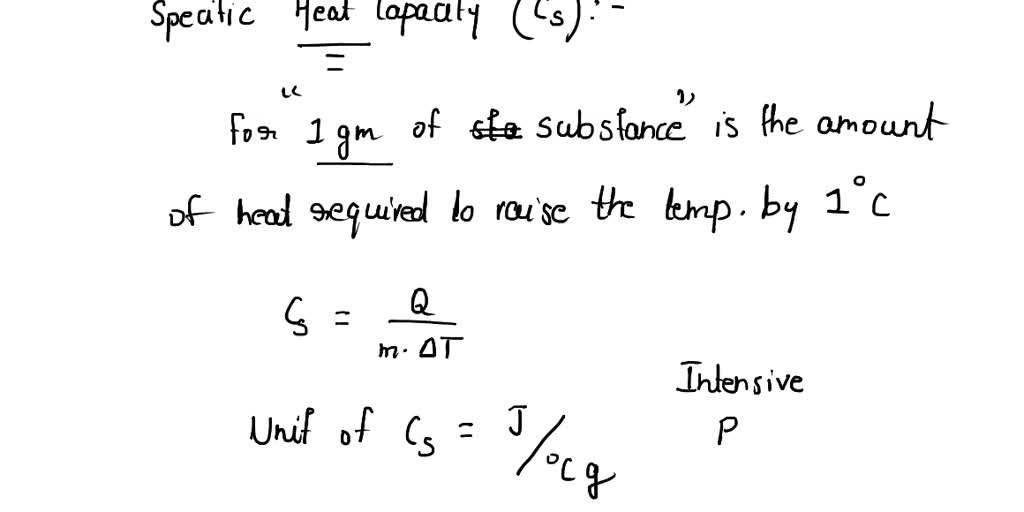 Specific Heat Capacity (Cs):-
For "1 gm of substance" is the amount
of heat required to raise the temp. by 1°C
Cs = Q / m. ΔT
Intensive
Unit of Cs = J/°C g
P